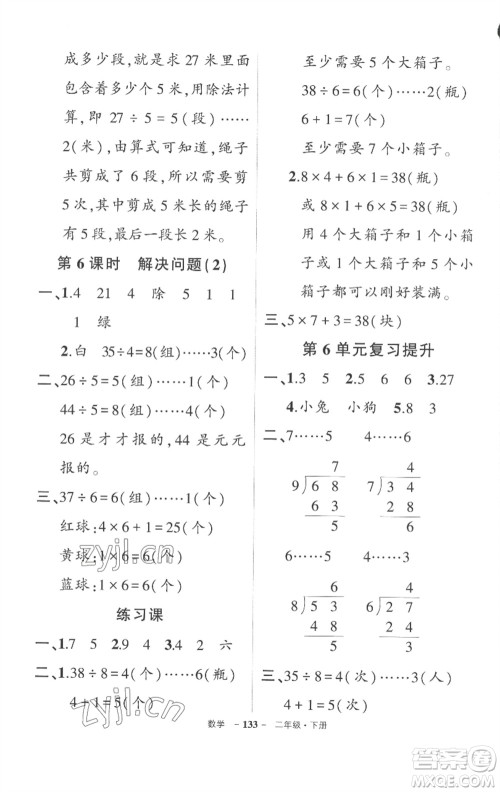 成多少段,就是求 27 米里面
包含着几个 5 米,用除法计
算,即 27÷5=5(段)……
2(米),由算式可知,绳子
共剪成了 6 段,所以需要剪
5 次,其中剪成 5 米长的绳子
有 5 段,最后一段长 2 米。
第 6 课时 解决问题(2)
一、1.4 21 4 除 5 1 1
1 绿
2.白 35÷4=8(组)……3(个)
二、26÷5=5(组)……1(个)
44÷5=8(组)……4(个)
26 是才才报的,44 是元元
报的。
三、37÷6=6(组)……1(个)
红球:4×6+1=25(个)
黄球:1×6=6(个)
蓝球:1×6=6(个)
练习课
一、1.7 5 2.9 4 3.4 2 六
二、1.38÷8=4(个)……6(瓶)
4+1=5(个)
至少需要 5 个大箱子。
38÷6=6(个)……2(瓶)
6+1=7(个)
至少需要 7 个小箱子。
2.8×4+6×1=38(瓶)
或 8×1+6×5=38(瓶)
用 4 个大箱子和 1 个小箱
子或 1 个大箱子和 5 个小
箱子,都可以刚好装满。
三、5×7+3=38(块)
第 6 单元复习提升
一、1.3 5 2.5 6 6 3.27
4.小兔 小狗 5.8 3
二、7……5 4……6
7 4
9 6 8 7 3 4
6 3 2 8
5 6
6……5 4……3
6 4
8 5 3 6 2 7
4 8 2 4
5 3
三、35÷8=4(次)……3(人)
4+1=5(次)
数学 - 133 - 二年级·下册
zyjl.cn
zyjl.cn
答案圈
MXQE.COM